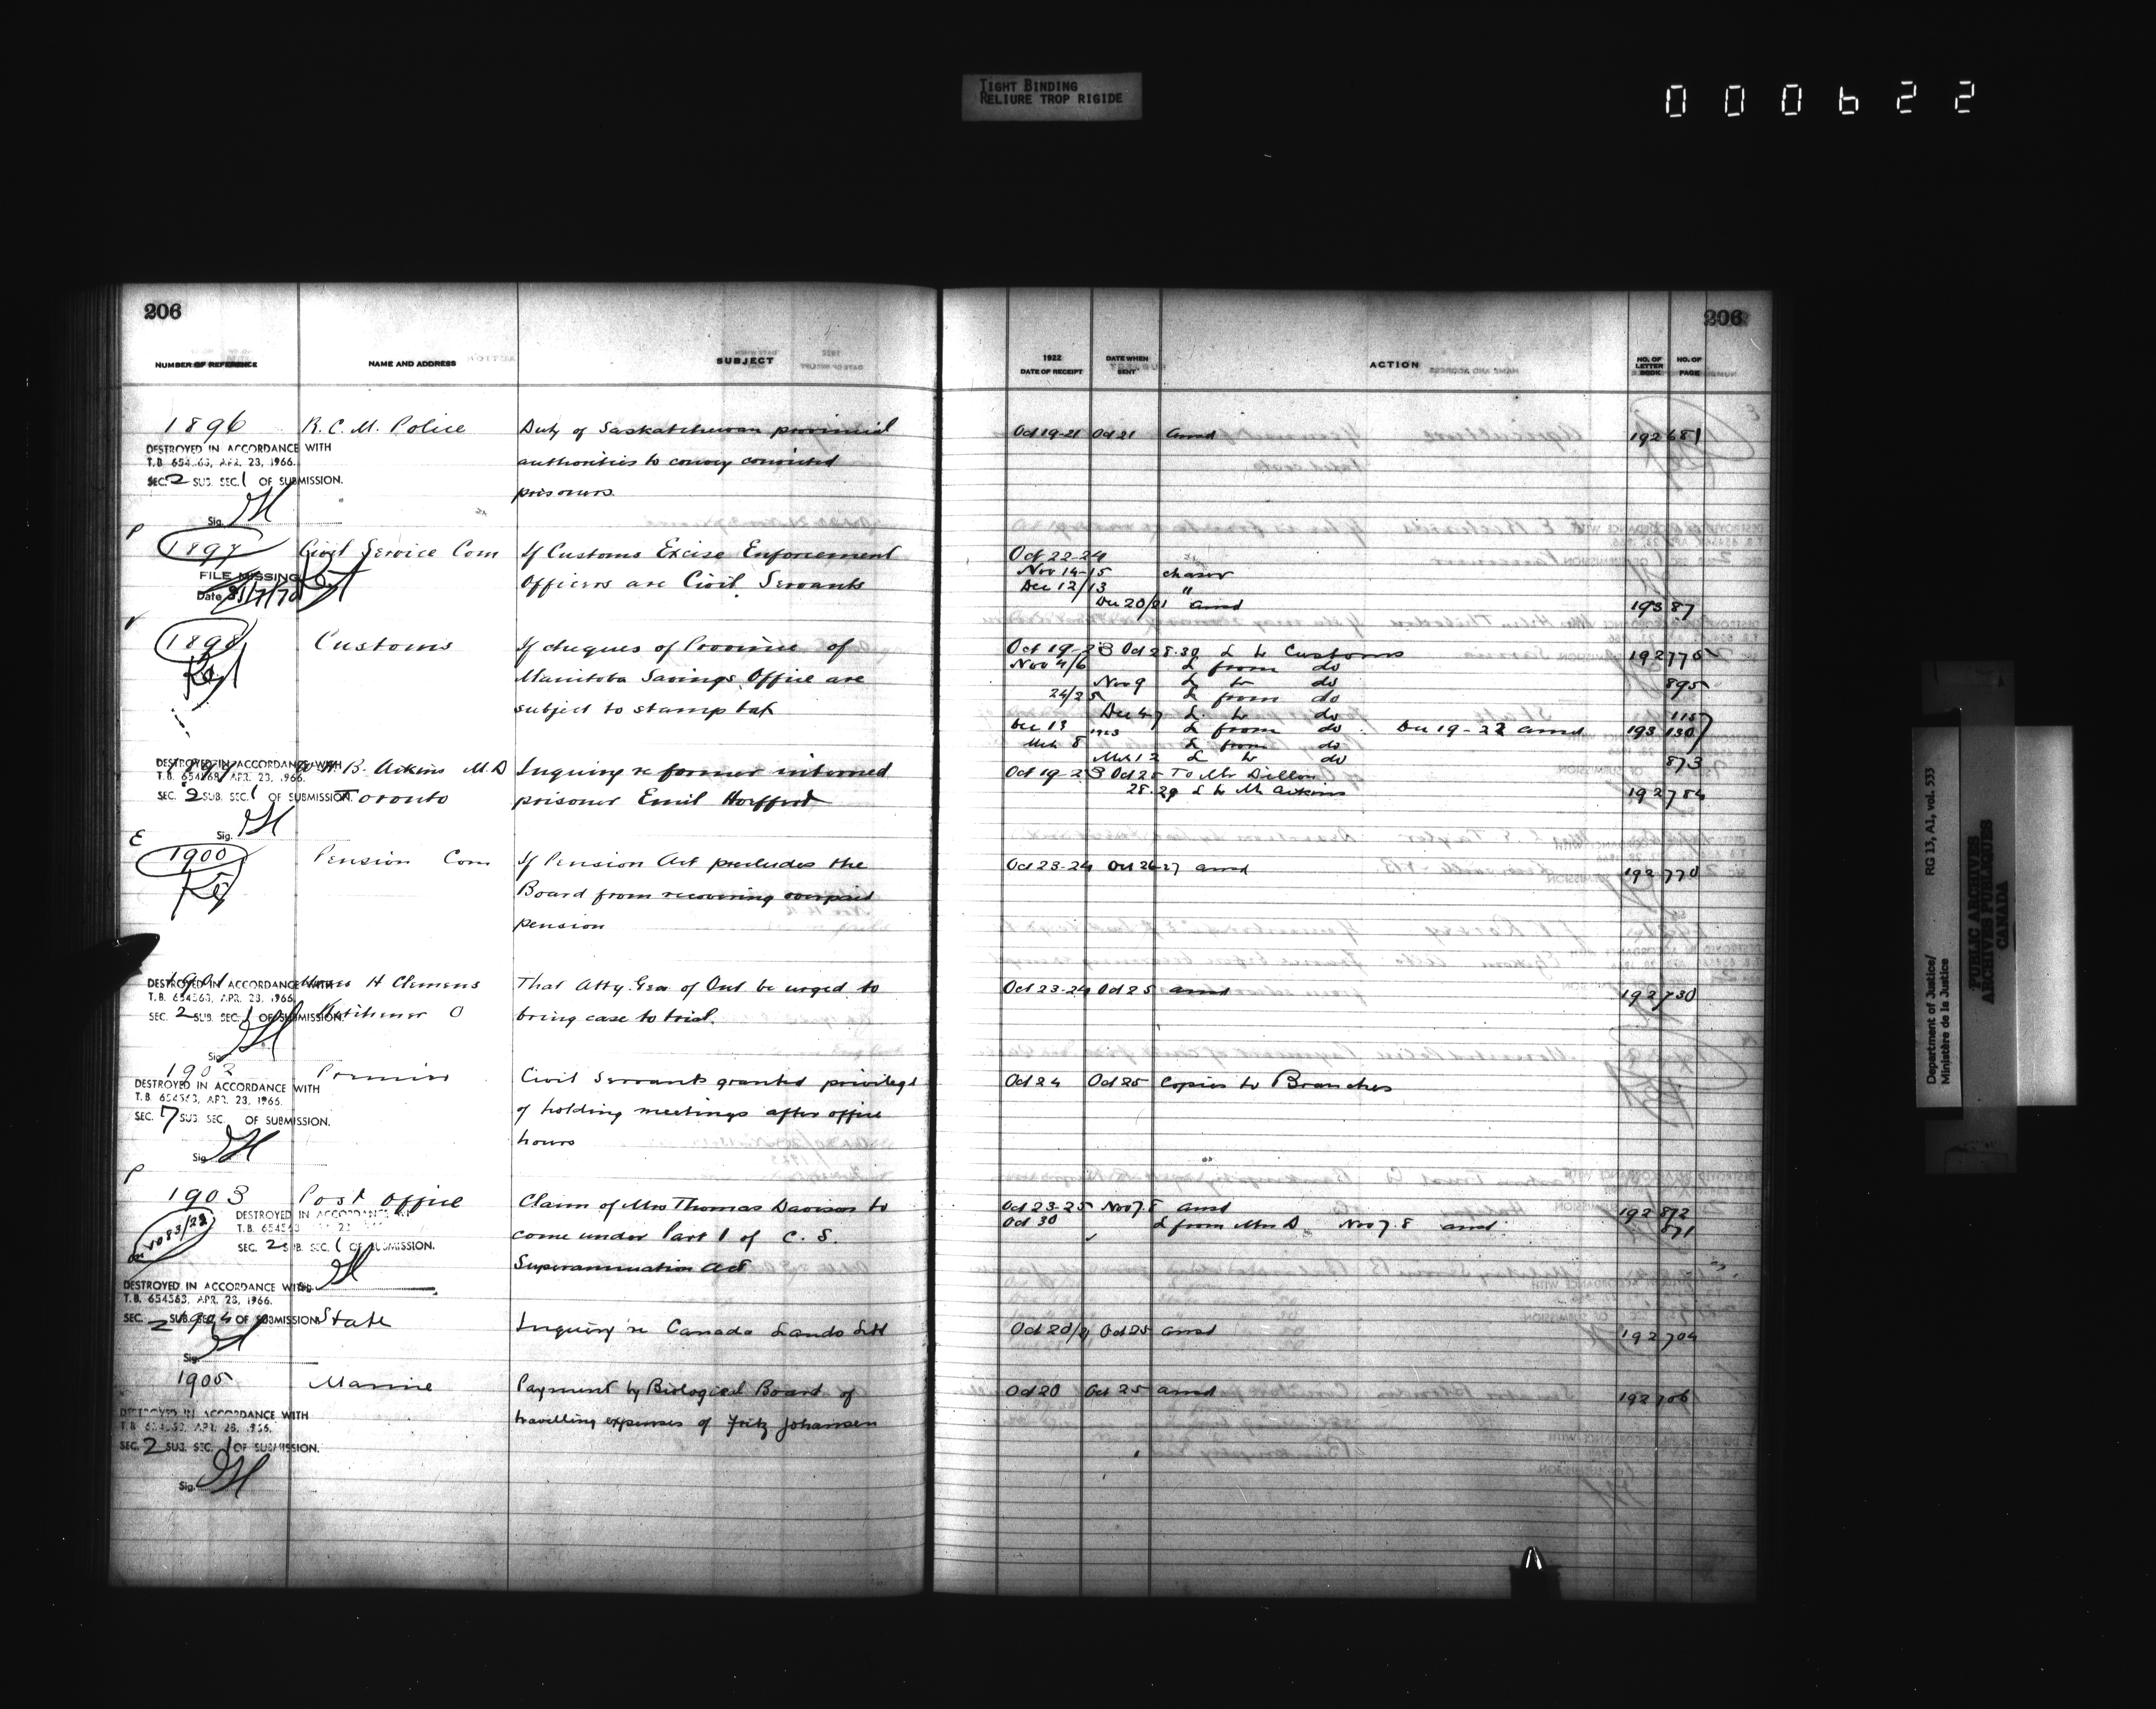 TIGHT BINDING
RELIURE TROP RIGIDE
000622
206
NUMBER OF REFERENCE NAME AND ADDRESS SUBJECT
1896 R. C. M. Police Duty of Saskatchewan provincial
DESTROYED IN ACCORDANCE WITH
T.B. 654563, APR. 23, 1966.
authorities to convey convicted
SEC. 2 SUB. SEC. 1 OF SUBMISSION.
prisoners
Sig. JH
P
1897 Civil Service Com If Customs Excise Enforcement
FILE MISSING
Officers are Civil Servants
Date
1898 Customs If cheques of Province of
Manitoba Savings Office are
subject to stamp tax
DESTROYED IN ACCORDANCE WITH
B. Aikins M.D Inquiry re former interned
T.B. 654563, APR. 23, 1966.
SEC. 2 SUB. SEC. 1 OF SUBMISSION.
Toronto prisoner Emil
Sig. JH
E
1900 Pension Com If Pension Act precludes the
Board from recovering overpaid
pension
1901 H Clemens That Atty. Gen of Ont be urged to
DESTROYED IN ACCORDANCE WITH
T.B. 654563, APR. 23, 1966.
SEC. 2 SUB. SEC. 1 OF SUBMISSION.
Kitchener O bring case to trial.
Sig. JH
1902 Premier Civil Servants granted privilege
DESTROYED IN ACCORDANCE WITH
T.B. 654563, APR. 23, 1966.
of holding meetings after office
SEC. 7 SUB. SEC. OF SUBMISSION.
hours
Sig. JH
P
1903 Post Office Claim of Mrs Thomas Davison to
DESTROYED IN ACCORDANCE
T.B. 654563
come under Part 1 of C. S.
SEC. 2 SUB. SEC. 1 OF SUBMISSION.
Superannuation Act
Sig. JH
DESTROYED IN ACCORDANCE WITH
T.B. 654563, APR. 23, 1966.
SEC. 2 SUB. SEC. OF SUBMISSION
1904 State Inquiry re Canada Lands Ltd
Sig. JH
1905 Marine Payment by Biological Board of
DESTROYED IN ACCORDANCE WITH
travelling expenses of Fritz Johansen
T.B. 654563, APR. 23, 1966.
SEC. 2 SUB. SEC. 1 OF SUBMISSION.
Sig. JH
206
1922
DATE OF RECEIPT DATE WHEN SENT ACTION NO. OF LETTER BOOK NO. OF PAGE
Oct 19-21 Oct 21 ansd 192 681
Oct 22-24
Nov 14-15 chaser
Dec 12/13 "
Dec 20/21 ansd 193 87
Oct 19-23 Oct 28-30 L to Customs 192 775
Nov 4/6 L from do
Nov 9 L to do 895
24/25 L from do
Dec 4-7 L to do 115
Dec 13 L from do Dec 19-22 ansd 193 130
1923
Mch 8 L from do
Mch 12 L to do 873
Oct 19-23 Oct 25 To Mr Dillon
28-29 L to Mr Aikins 192 784
Oct 23-24 Oct 26-27 ansd 192 770
Oct 23-24 Oct 25 ansd 192 730
Oct 24 Oct 25 Copies to Branches
Oct 23-25 Nov 7.8 ansd 192 872
Oct 30 L from Mrs D. Nov 7.8 ansd 871
Oct 20/21 Oct 25 ansd 192 704
Oct 20 Oct 25 ansd 192 706
Department of Justice/ RG 13, A1, vol. 533
Ministère de la Justice
PUBLIC ARCHIVES
ARCHIVES PUBLIQUES
CANADA